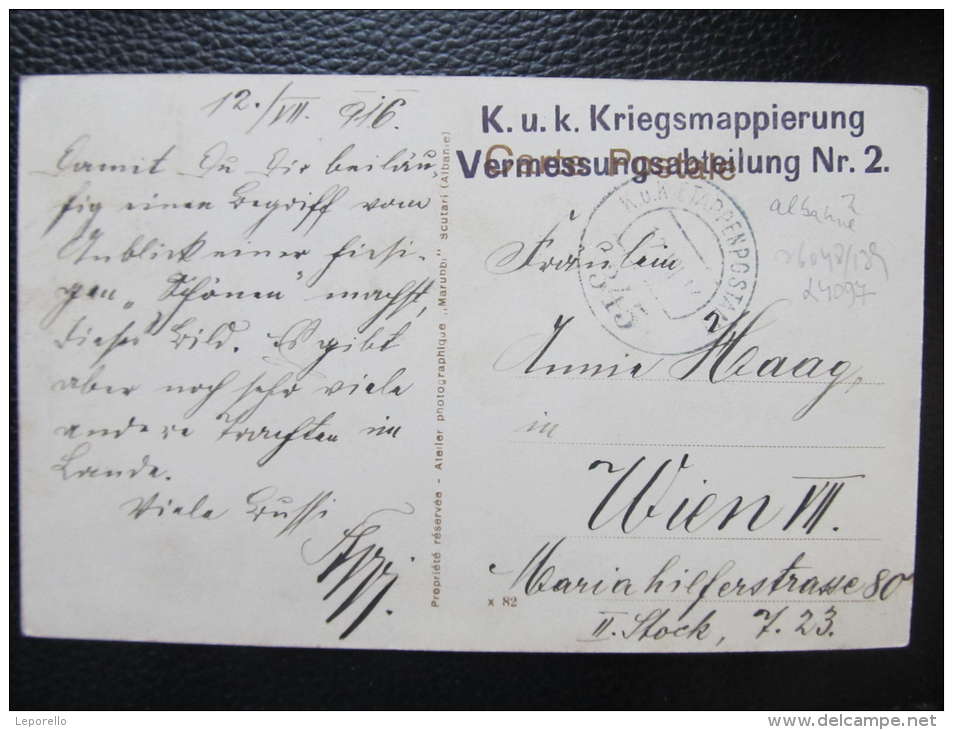 12./VII. 916.
Damit Du Dir beiläu-
fig einen Begriff vom
Anblick einer hiesi-
gen „Schönen" machst,
dieses Bild. Es gibt
aber noch sehr viele
andere Trachten im
Lande.
Viele Bussi
Propriété réservée - Atelier photographique „Marubbi" Scutari (Albanie)
K. u. k. Kriegsmappierung
Vermessungsabteilung Nr. 2.
Carte Postale
K.u.K. ETAPPENPOSTA
345
Fräulein
Annie Haag,
in
Wien VII.
Mariahilferstrasse 80
II. Stock, T. 23.
x 82
24097
Leporello
www.delcampe.net